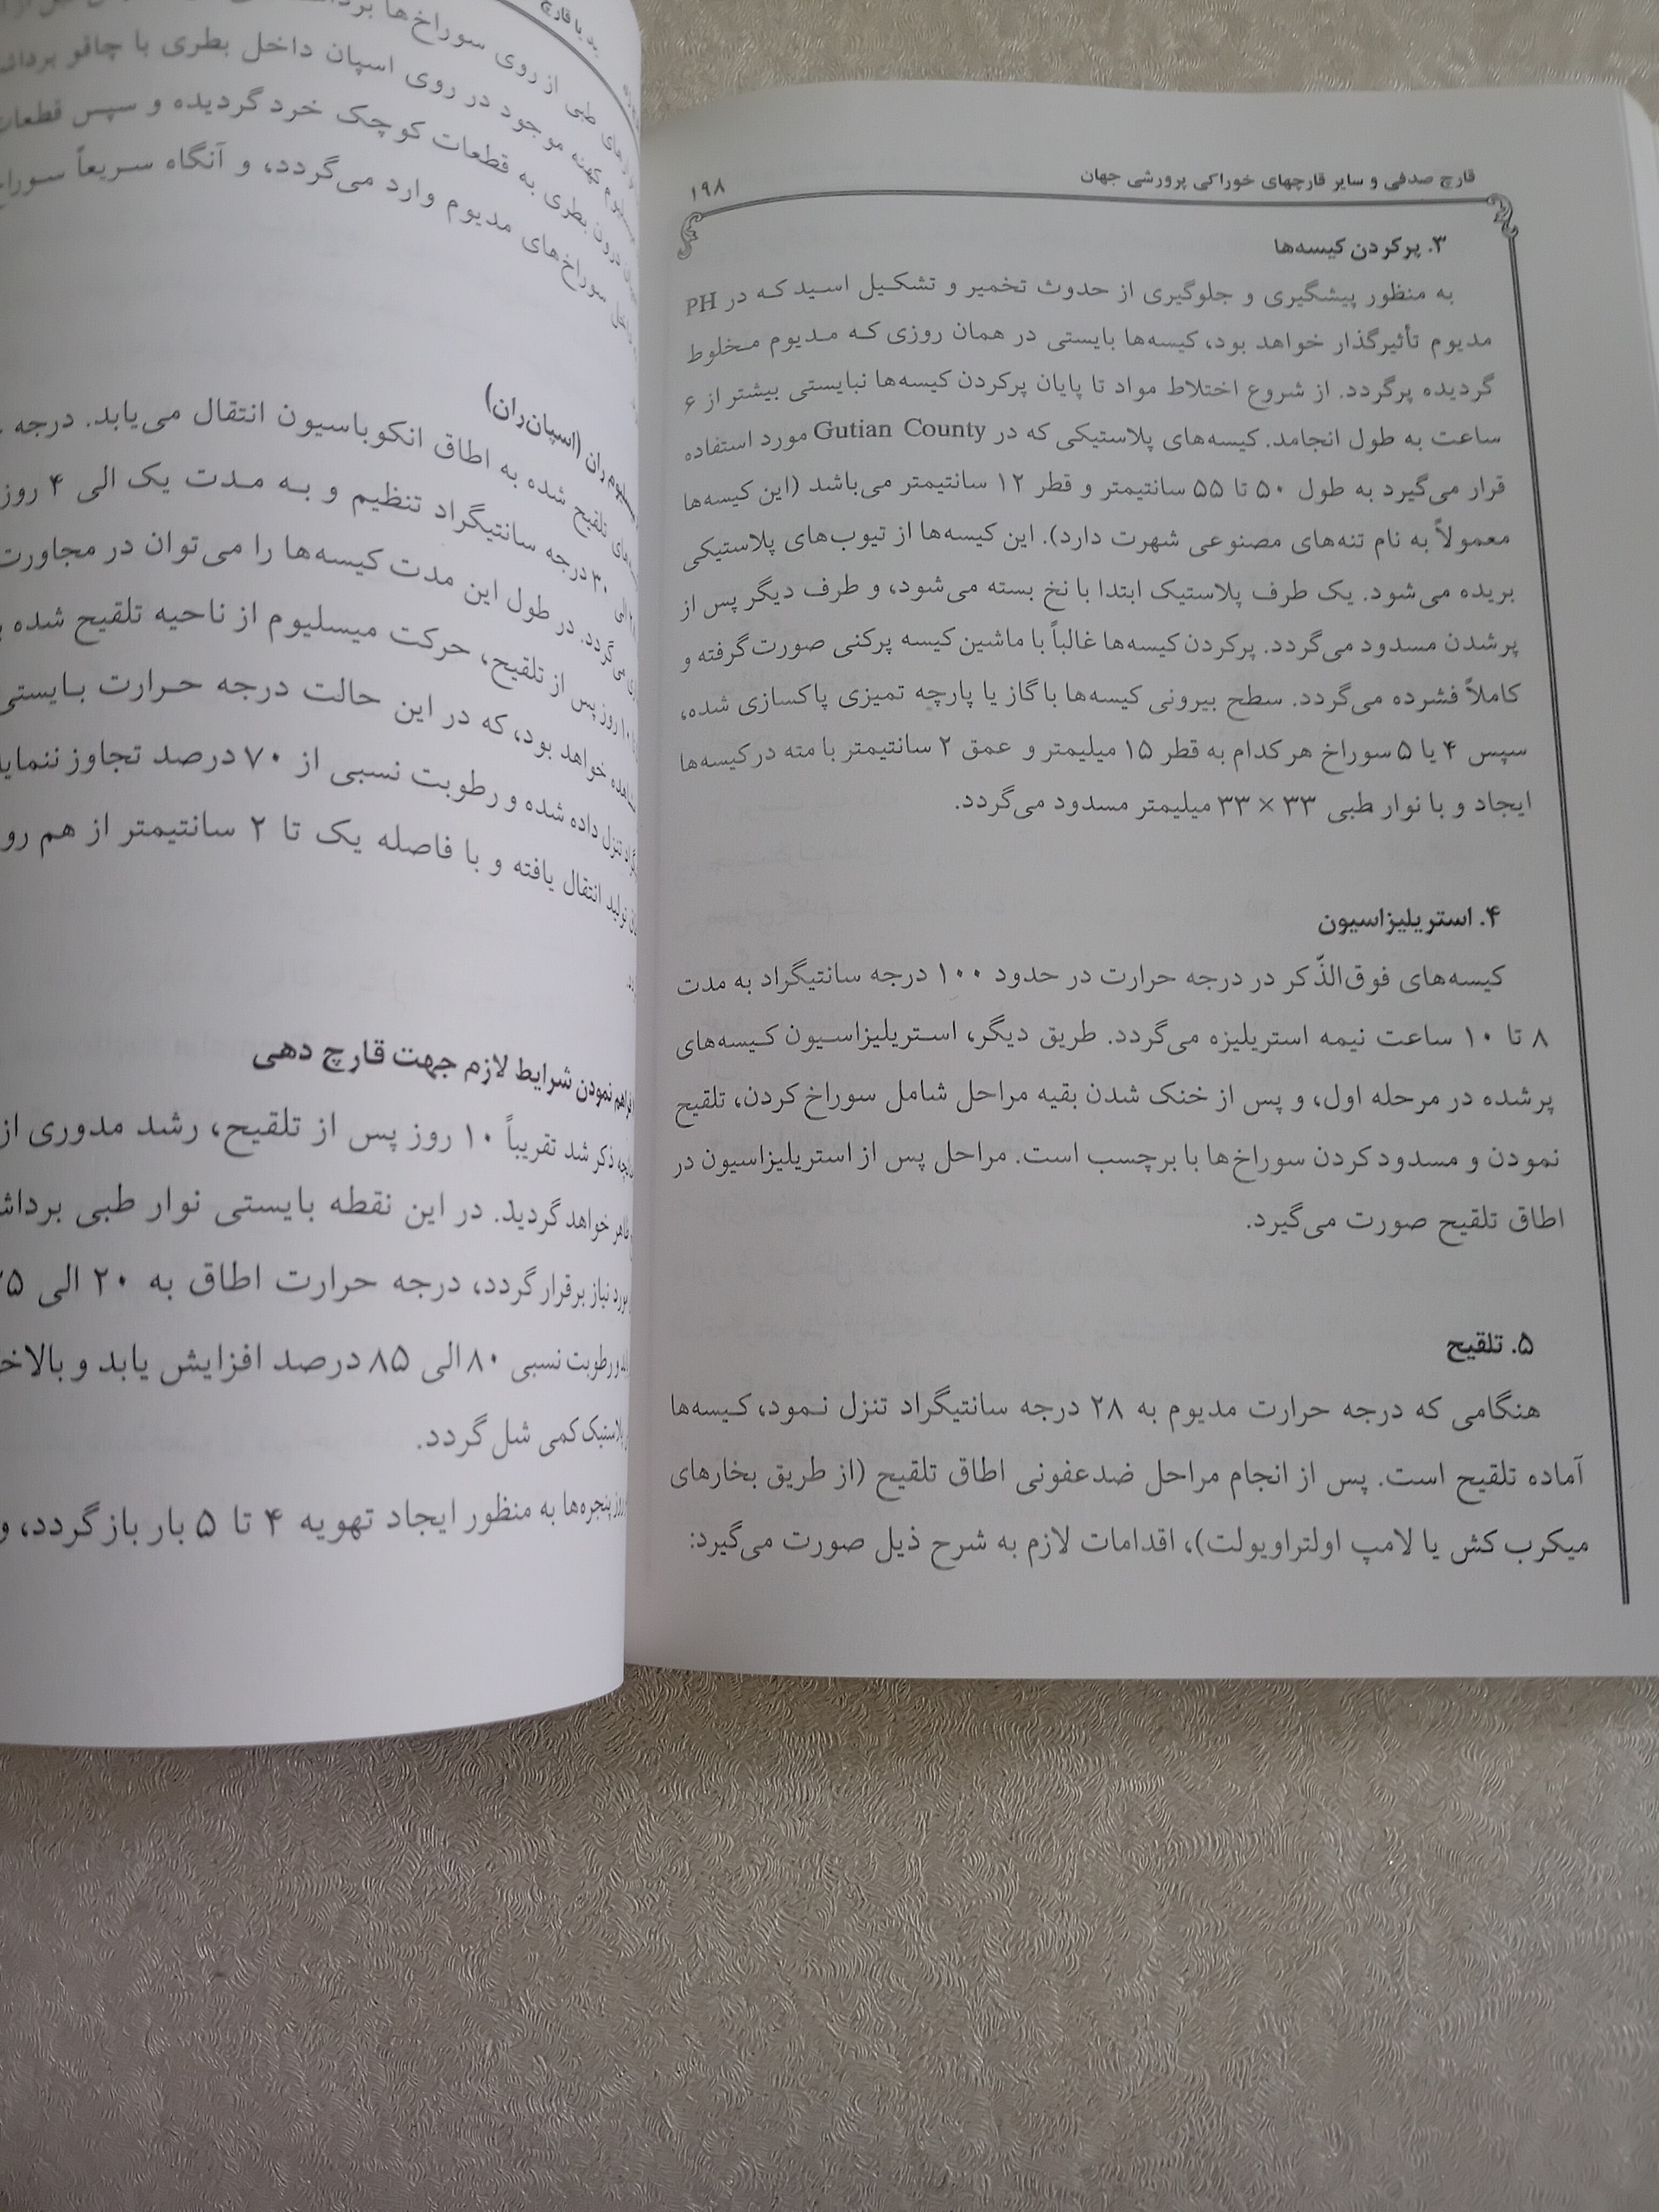 قارچ صدفی و سایر قارچهای خوراکی پرورشی جهان
۱۹۸
۳. پرکردن کیسه‌ها
به منظور پیشگیری و جلوگیری از حدوث تخمیر و تشکیل اسید که در PH
مدیوم تأثیرگذار خواهد بود، کیسه‌ها بایستی در همان روزی که مدیوم مخلوط
گردیده پرگردد. از شروع اختلاط مواد تا پایان پرکردن کیسه‌ها نبایستی بیشتر از ۶
ساعت به طول انجامد. کیسه‌های پلاستیکی که در Gutian County مورد استفاده
قرار می‌گیرد به طول ۵۰ تا ۵۵ سانتیمتر و قطر ۱۲ سانتیمتر می‌باشد (این کیسه‌ها
معمولاً به نام تنه‌های مصنوعی شهرت دارد). این کیسه‌ها از تیوب‌های پلاستیکی
بریده می‌شود. یک طرف پلاستیک ابتدا با نخ بسته می‌شود، و طرف دیگر پس از
پرشدن مسدود می‌گردد. پرکردن کیسه‌ها غالباً با ماشین کیسه پرکنی صورت گرفته و
کاملاً فشرده می‌گردد. سطح بیرونی کیسه‌ها با گاز یا پارچه تمیزی پاکسازی شده،
سپس ۴ یا ۵ سوراخ هر کدام به قطر ۱۵ میلیمتر و عمق ۲ سانتیمتر با مته در کیسه‌ها
ایجاد و با نوار طبی ۳۳ × ۳۳ میلیمتر مسدود می‌گردد.
۴. استریلیزاسیون
کیسه‌های فوق‌الذّکر در درجه حرارت در حدود ۱۰۰ درجه سانتیگراد به مدت
۸ تا ۱۰ ساعت نیمه استریلیزه می‌گردد. طریق دیگر، استریلیزاسیون کیسه‌های
پرشده در مرحله اول، و پس از خنک شدن بقیه مراحل شامل سوراخ کردن، تلقیح
نمودن و مسدود کردن سوراخ‌ها با برچسب است. مراحل پس از استریلیزاسیون در
اطاق تلقیح صورت می‌گیرد.
۵. تلقیح
هنگامی که درجه حرارت مدیوم به ۲۸ درجه سانتیگراد تنزل نمود، کیسه‌ها
آماده تلقیح است. پس از انجام مراحل ضدعفونی اطاق تلقیح (از طریق بخارهای
میکرب کش یا لامپ اولتراویولت)، اقدامات لازم به شرح ذیل صورت می‌گیرد:
طبی از روی سوراخ‌ها
کهنه موجود در روی اسپان داخل بطری با چاقو
درون بطری به قطعات کوچک خرد گردیده و سپس
سوراخ‌های مدیوم وارد می‌گردد، و آنگاه سریعاً
ران (اسپان‌ران)
تلقیح شده به اطاق انکوباسیون انتقال می‌یابد. درجه
۳۰ درجه سانتیگراد تنظیم و به مدت یک الی ۴ روز
می‌گردد. در طول این مدت کیسه‌ها را می‌توان در مجاورت
روز پس از تلقیح، حرکت میسلیوم از ناحیه تلقیح شده
خواهد بود، که در این حالت درجه حرارت بایستی
تنزل داده شده و رطوبت نسبی از ۷۰ درصد تجاوز
تولید انتقال یافته و با فاصله یک تا ۲ سانتیمتر از هم
نمودن شرایط لازم جهت قارچ دهی
ذکر شد تقریباً ۱۰ روز پس از تلقیح، رشد مدوری از
خواهد گردید. در این نقطه بایستی نوار طبی
نیاز برقرار گردد، درجه حرارت اطاق به ۲۰ الی
رطوبت نسبی ۸۰ الی ۸۵ درصد افزایش یابد و
پلاستیک کمی شل گردد.
روز پنجره‌ها به منظور ایجاد تهویه ۴ تا ۵ بار باز گردد، و